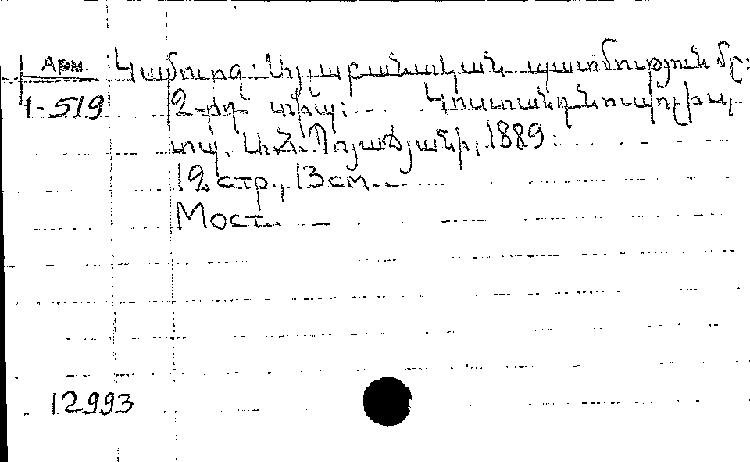 Арм
1-519
Կամուրջ: Այլաբանական պատմություն մը:
2-րդ տիպ: Կոստանդնուպոլիս,
տպ. Ա.Հ. Պոյաճյանի, 1889:
12 стр., 13 см.
Мост.
12993